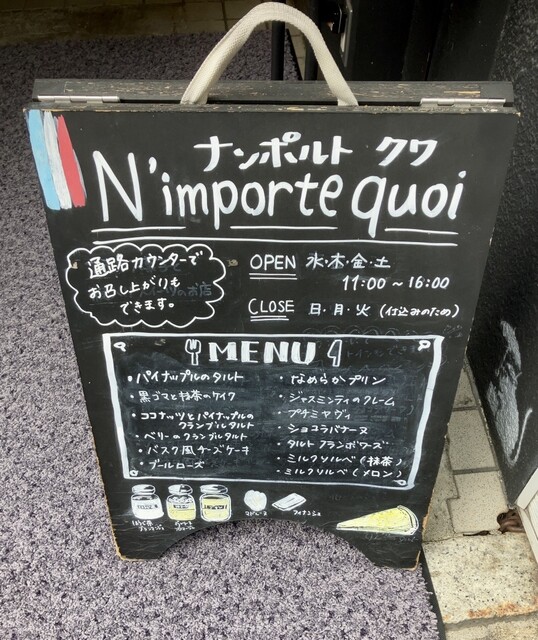 ナンポルト クワ
N'importe quoi
通路カウンターで
お召し上がりも
できます。
OPEN 水・木・金・土
11:00～16:00
CLOSE 日・月・火 (仕込みのため)
MENU
・パイナップルのタルト
・黒ゴマと抹茶のケイク
・ココナッツとパイナップルの
クランブルタルト
・ベリーのクランブルタルト
・バスク風チーズケーキ
・ブールローズ
・なめらかプリン
・ジャスミンティのクレーム
・プチミヤヴィ
・ショコラバナーヌ
・タルトフランボワーズ
・ミルクソルベ(抹茶)
・ミルクソルベ(メロン)
フィナンシェ